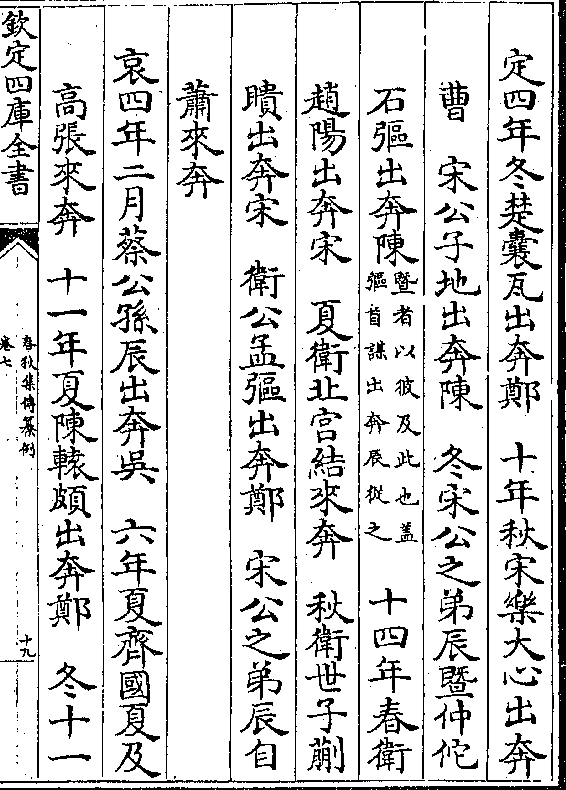 定四年冬楚囊瓦出奔鄭　十年秋宋樂大心出奔
曹　宋公子地出奔陳　冬宋公之弟辰暨仲佗
石彄出奔陳暨者以彼及此也蓋彄首謀出奔辰從之　十四年春衛
趙陽出奔宋　夏衛北宮結來奔　秋衛世子蒯
聵出奔宋　衛公孟彄出奔鄭　宋公之弟辰自
蕭來奔
哀四年二月蔡公孫辰出奔吳　六年夏齊國夏及
高張來奔　十一年夏陳轅頗出奔鄭　冬十一
欽定四庫全書
春秋集傳纂例
卷七
十九